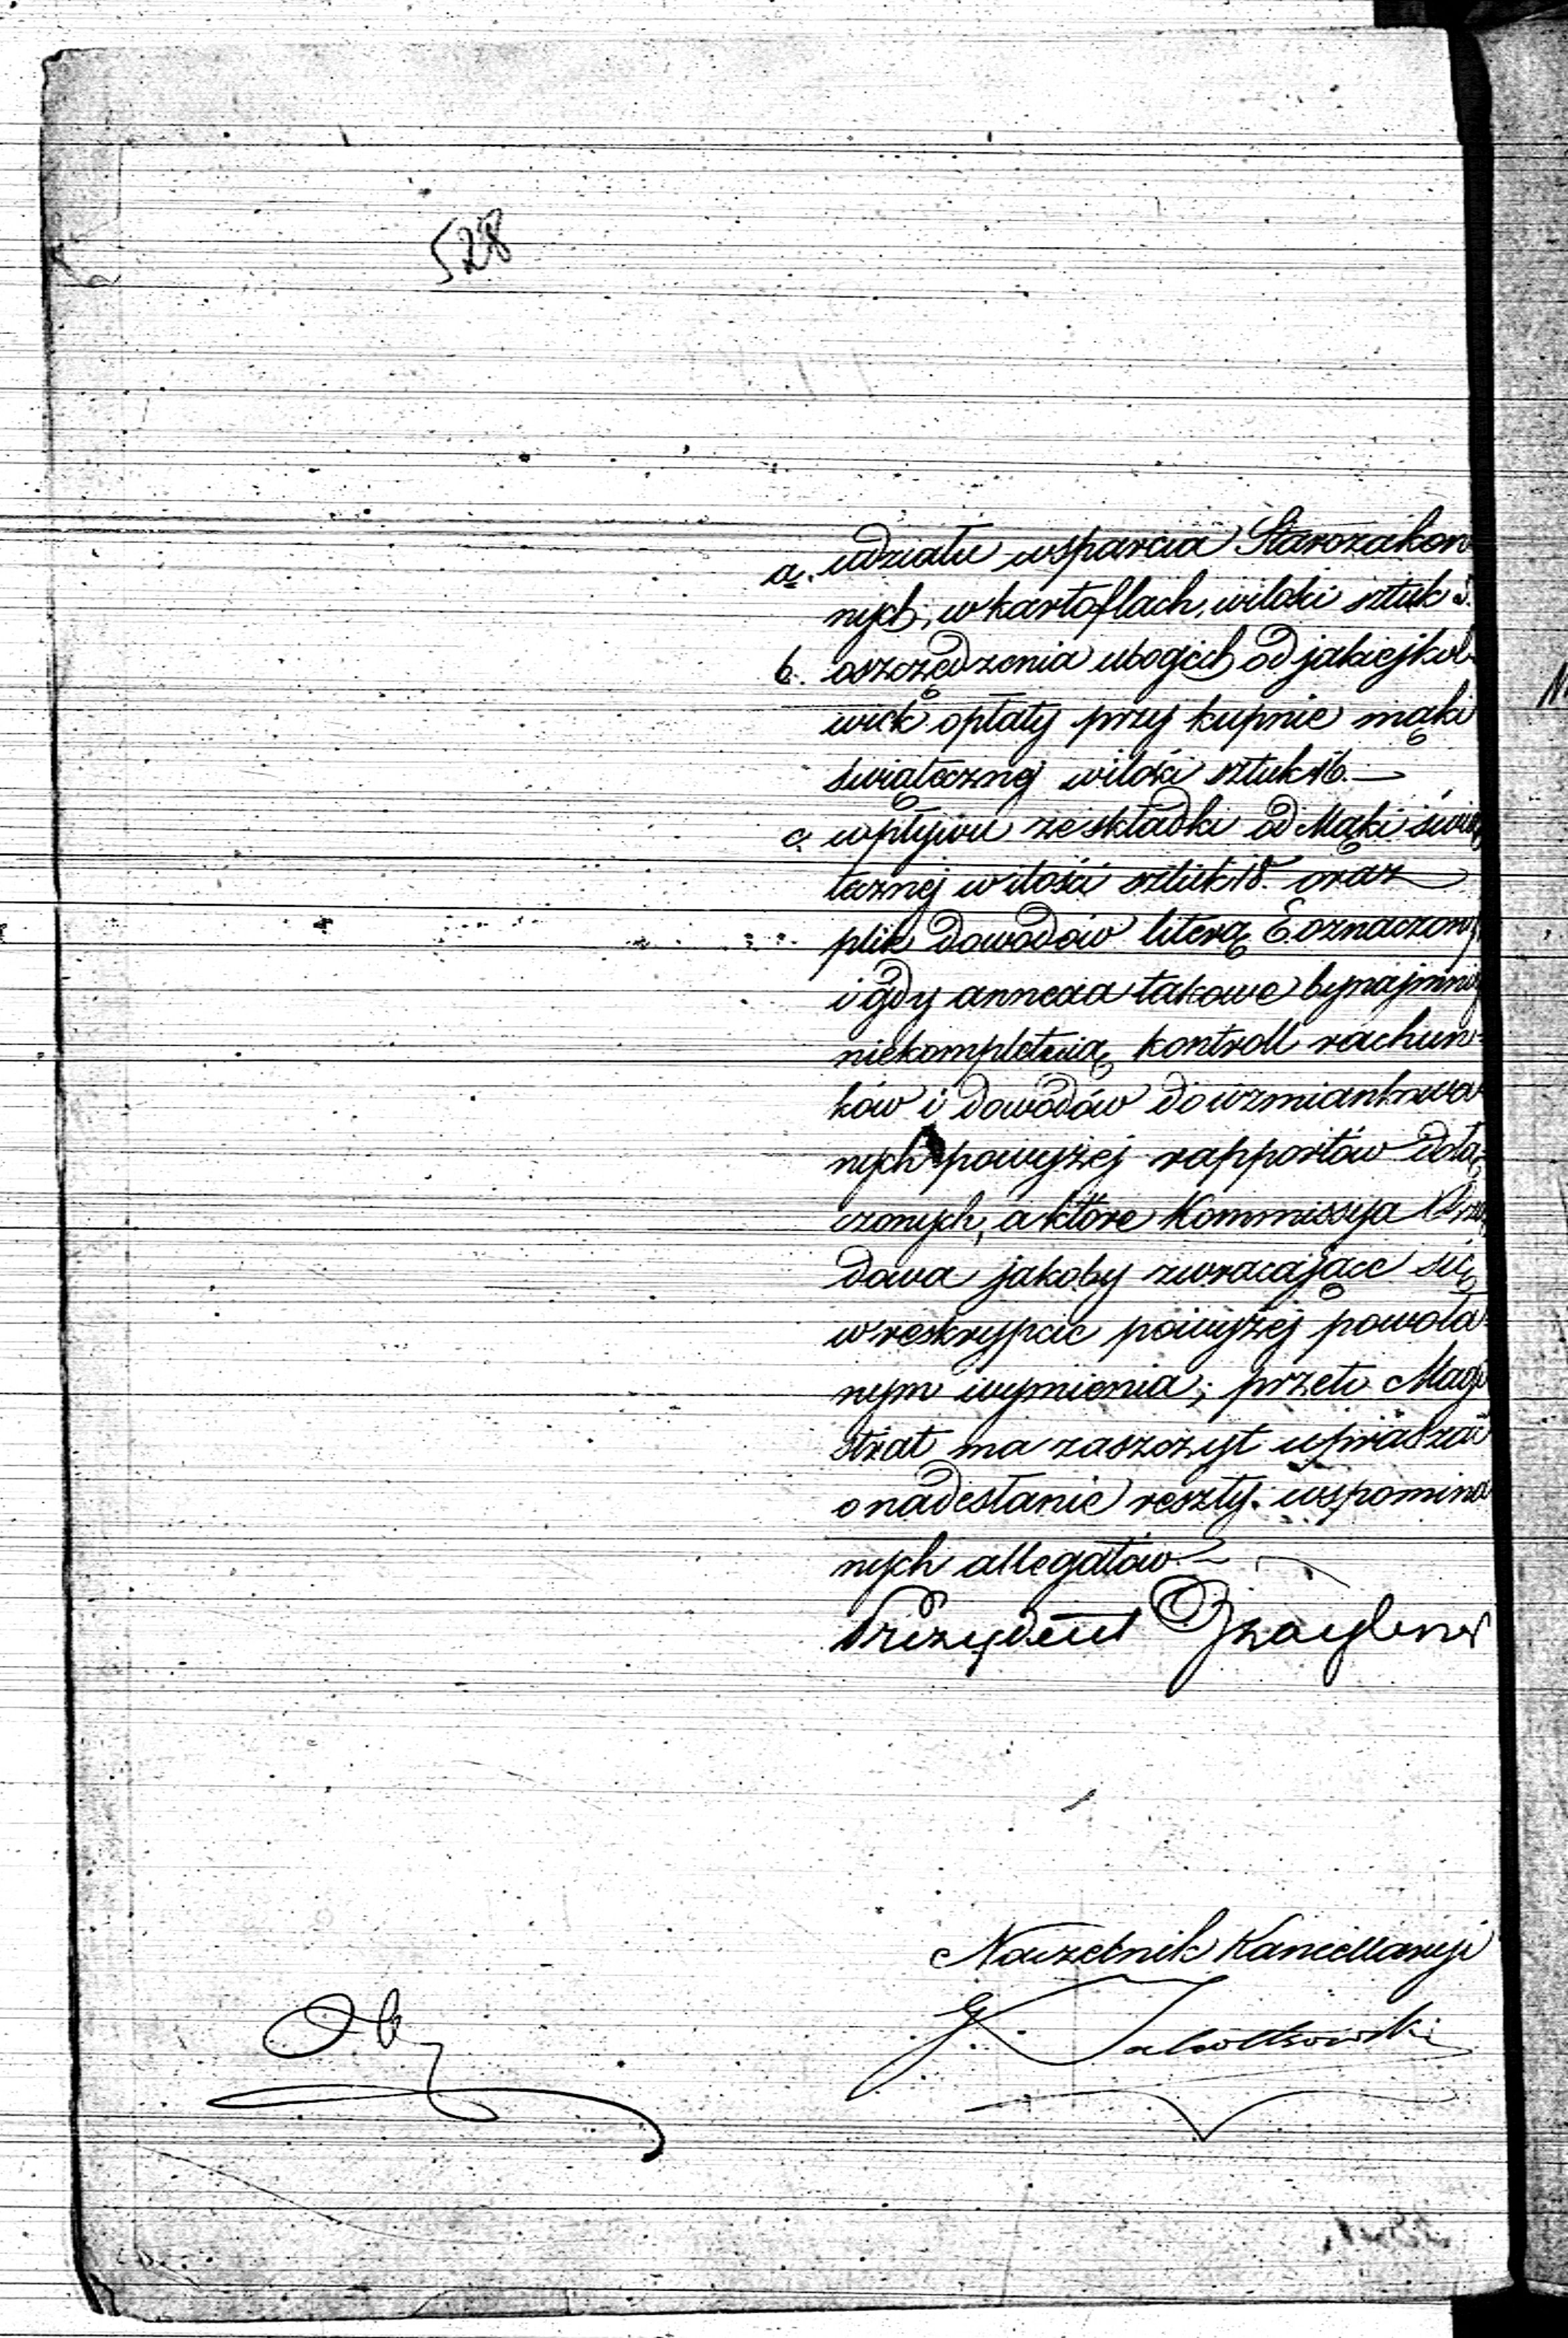 528
a. udziału wsparcia Starozakon-
nych, w kartoflach, wilości sztuk 5.
b. oszczędzenia ubogich od jakiejkol-
wiek opłaty przy kupnie mąki
świątecznej wilości sztuk 16.—
c. wpływu ze składki od Mąki świą
tecznej w ilości sztuk 18. oraz
plik dowodów literą E oznaczony
i gdy annexa takowe bynajmniej
niekompletują kontroll rachun-
ków i dowodów do wzmiankowa-
nych powyżej rapportów dołą-
czonych, a które Kommissya Rzą
dowa jakoby zwracające się
w reskrypcie powyżej powoła-
nym wymienia; przeto Magi
strat ma zaszczyt upraszać
o nadesłanie reszty wspomina
nych allegatów.
Prezydent
Naczelnik Kancellaryi